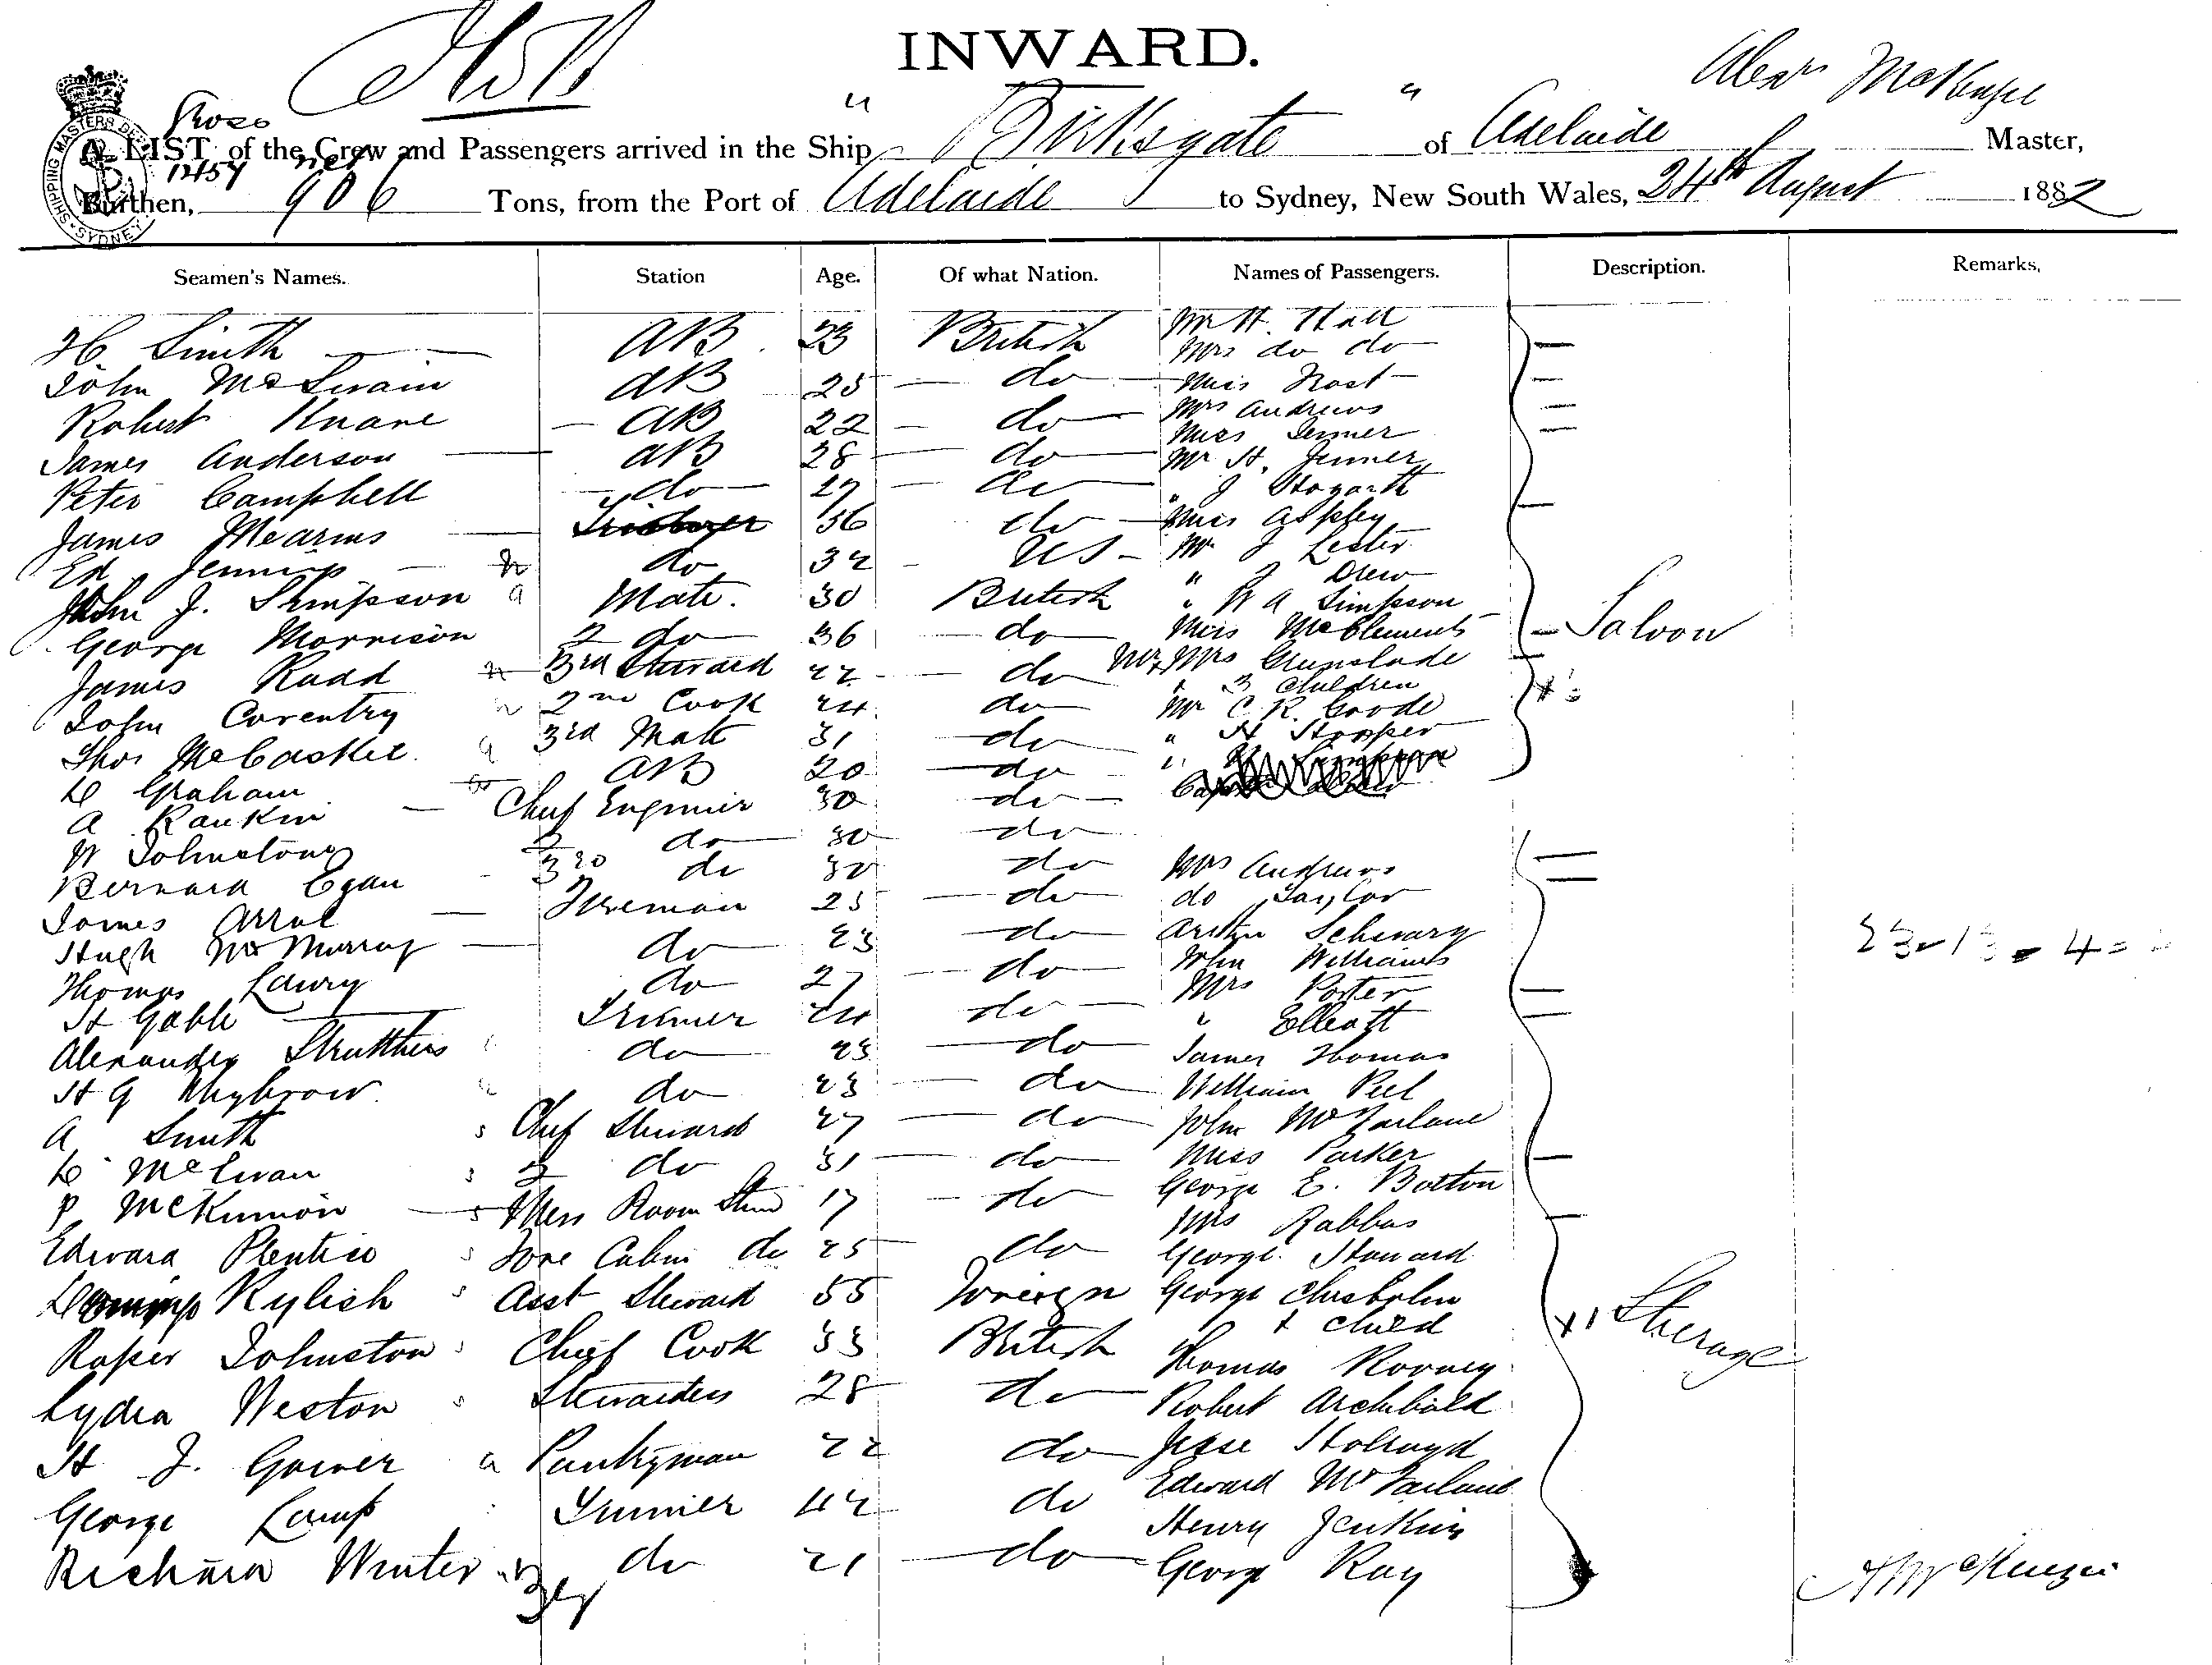 INWARD.
Alexr McKenzie
Gross
1459 net
A LIST of the Crew and Passengers arrived in the Ship " Birksgate " of Adelaide Master,
Burthen, 906 Tons, from the Port of Adelaide to Sydney, New South Wales, 24th August 1882
SHIPPING MASTERS SYDNEY
Seamen's Names. Station Age. Of what Nation. Names of Passengers. Description. Remarks,
H Smith AB 23 British Mr H. Hall
Mrs do do
John McSwain AB 25 do Miss Frost
Robert Knane AB 22 do Mrs Andrews
Miss Jenner
James Anderson AB 28 do Mr H. Jenner
Peter Campbell do 27 do " J Hogarth
James Mearns 36 do Miss Aspley
Ed Jennings do 32 US Mr J Lester
" J Drew
John J. Simpson a Mate. 30 British " W A Simpson
George Morrison 2 do 36 do Miss McClements Saloon
James Rudd 3rd Steward 22 do Mr & Mrs Grunslade
" 3 Children
John Coventry 2nd Cook 24 do Mr C. R. Goode
Thos McCaskie 3rd Mate 31 do " H Hopper
D Graham AB 20 do
A Rankin Chief Engineer 30 do
W Johnstone 2 do 30 do
Bernard Egan 3rd do 30 do Mrs Andrews
James Arrol Fireman 25 do do Taylor
Hugh McMurray do 23 do Arthur Schwary
Thomas Lawry do 27 do John Williams
Mrs Porter
H Gable Trimmer 24 do " Elleott
Alexander Struthers do 23 do James Thomas
H G Whybrow do 23 do William Peel
A Smith s Chief Steward 27 do John McFarlane
D McEwan s 2 do 31 do Miss Parker
P McKinnon s Mess Room Stwd 17 do George E. Botton
Mrs Rabbas
Edward Prentice s Fore Cabin do 25 do George Howard
Rylich s Asst Steward 55 Foreign George Chisholm
& child Steerage
Roper Johnston Chief Cook 33 British Thomas Rooney
Lydia Weston Stewardess 28 do Robert Archibald
H J. Gower a Pantryman 22 do Jesse Holroyd
Edward McFarlane
George Lamp Trimmer 42 do Henry Jenkins
Richard Winter do 21 do George Ray
A McKenzie